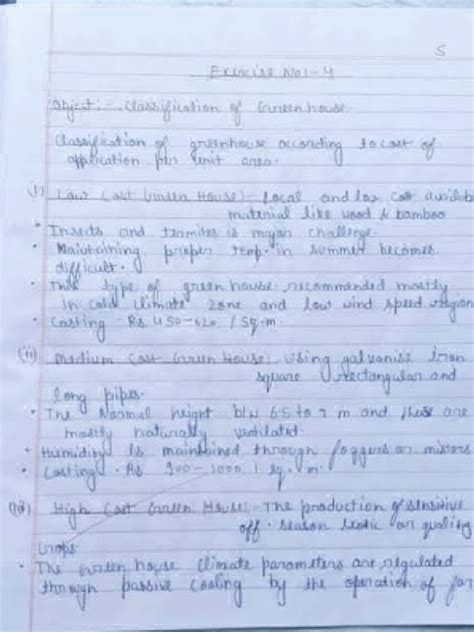 5
Exercise No:- 4
Object:- Classification of Greenhouse.
Classification of greenhouse according to cost of
application per unit area:-
(i) Low Cost Green House:- local and low cost available
material like wood & bamboo
• Insects and termites is major challenge.
• Maintaining proper temp. in summer becomes
difficult.
• This type of green house recommended mostly
in cold climate zone and low wind speed region
• Casting - Rs 450-620 / Sq. m.
(ii) Medium Cost Green House:- Using galvanise Iron
square rectangular and
long pipes.
• The Normal height b/w 6.5 to 7 m and these are
mostly naturally ventilated.
+ Humidity is maintained through foggers or mistors
• Casting - Rs 900-1000 / sq. m
(iii) High Cost Green House:- The production of sensitive
off-season exotic or quality
crops
• The Green house climate parameters are regulated
through passive cooling by the operation of fan